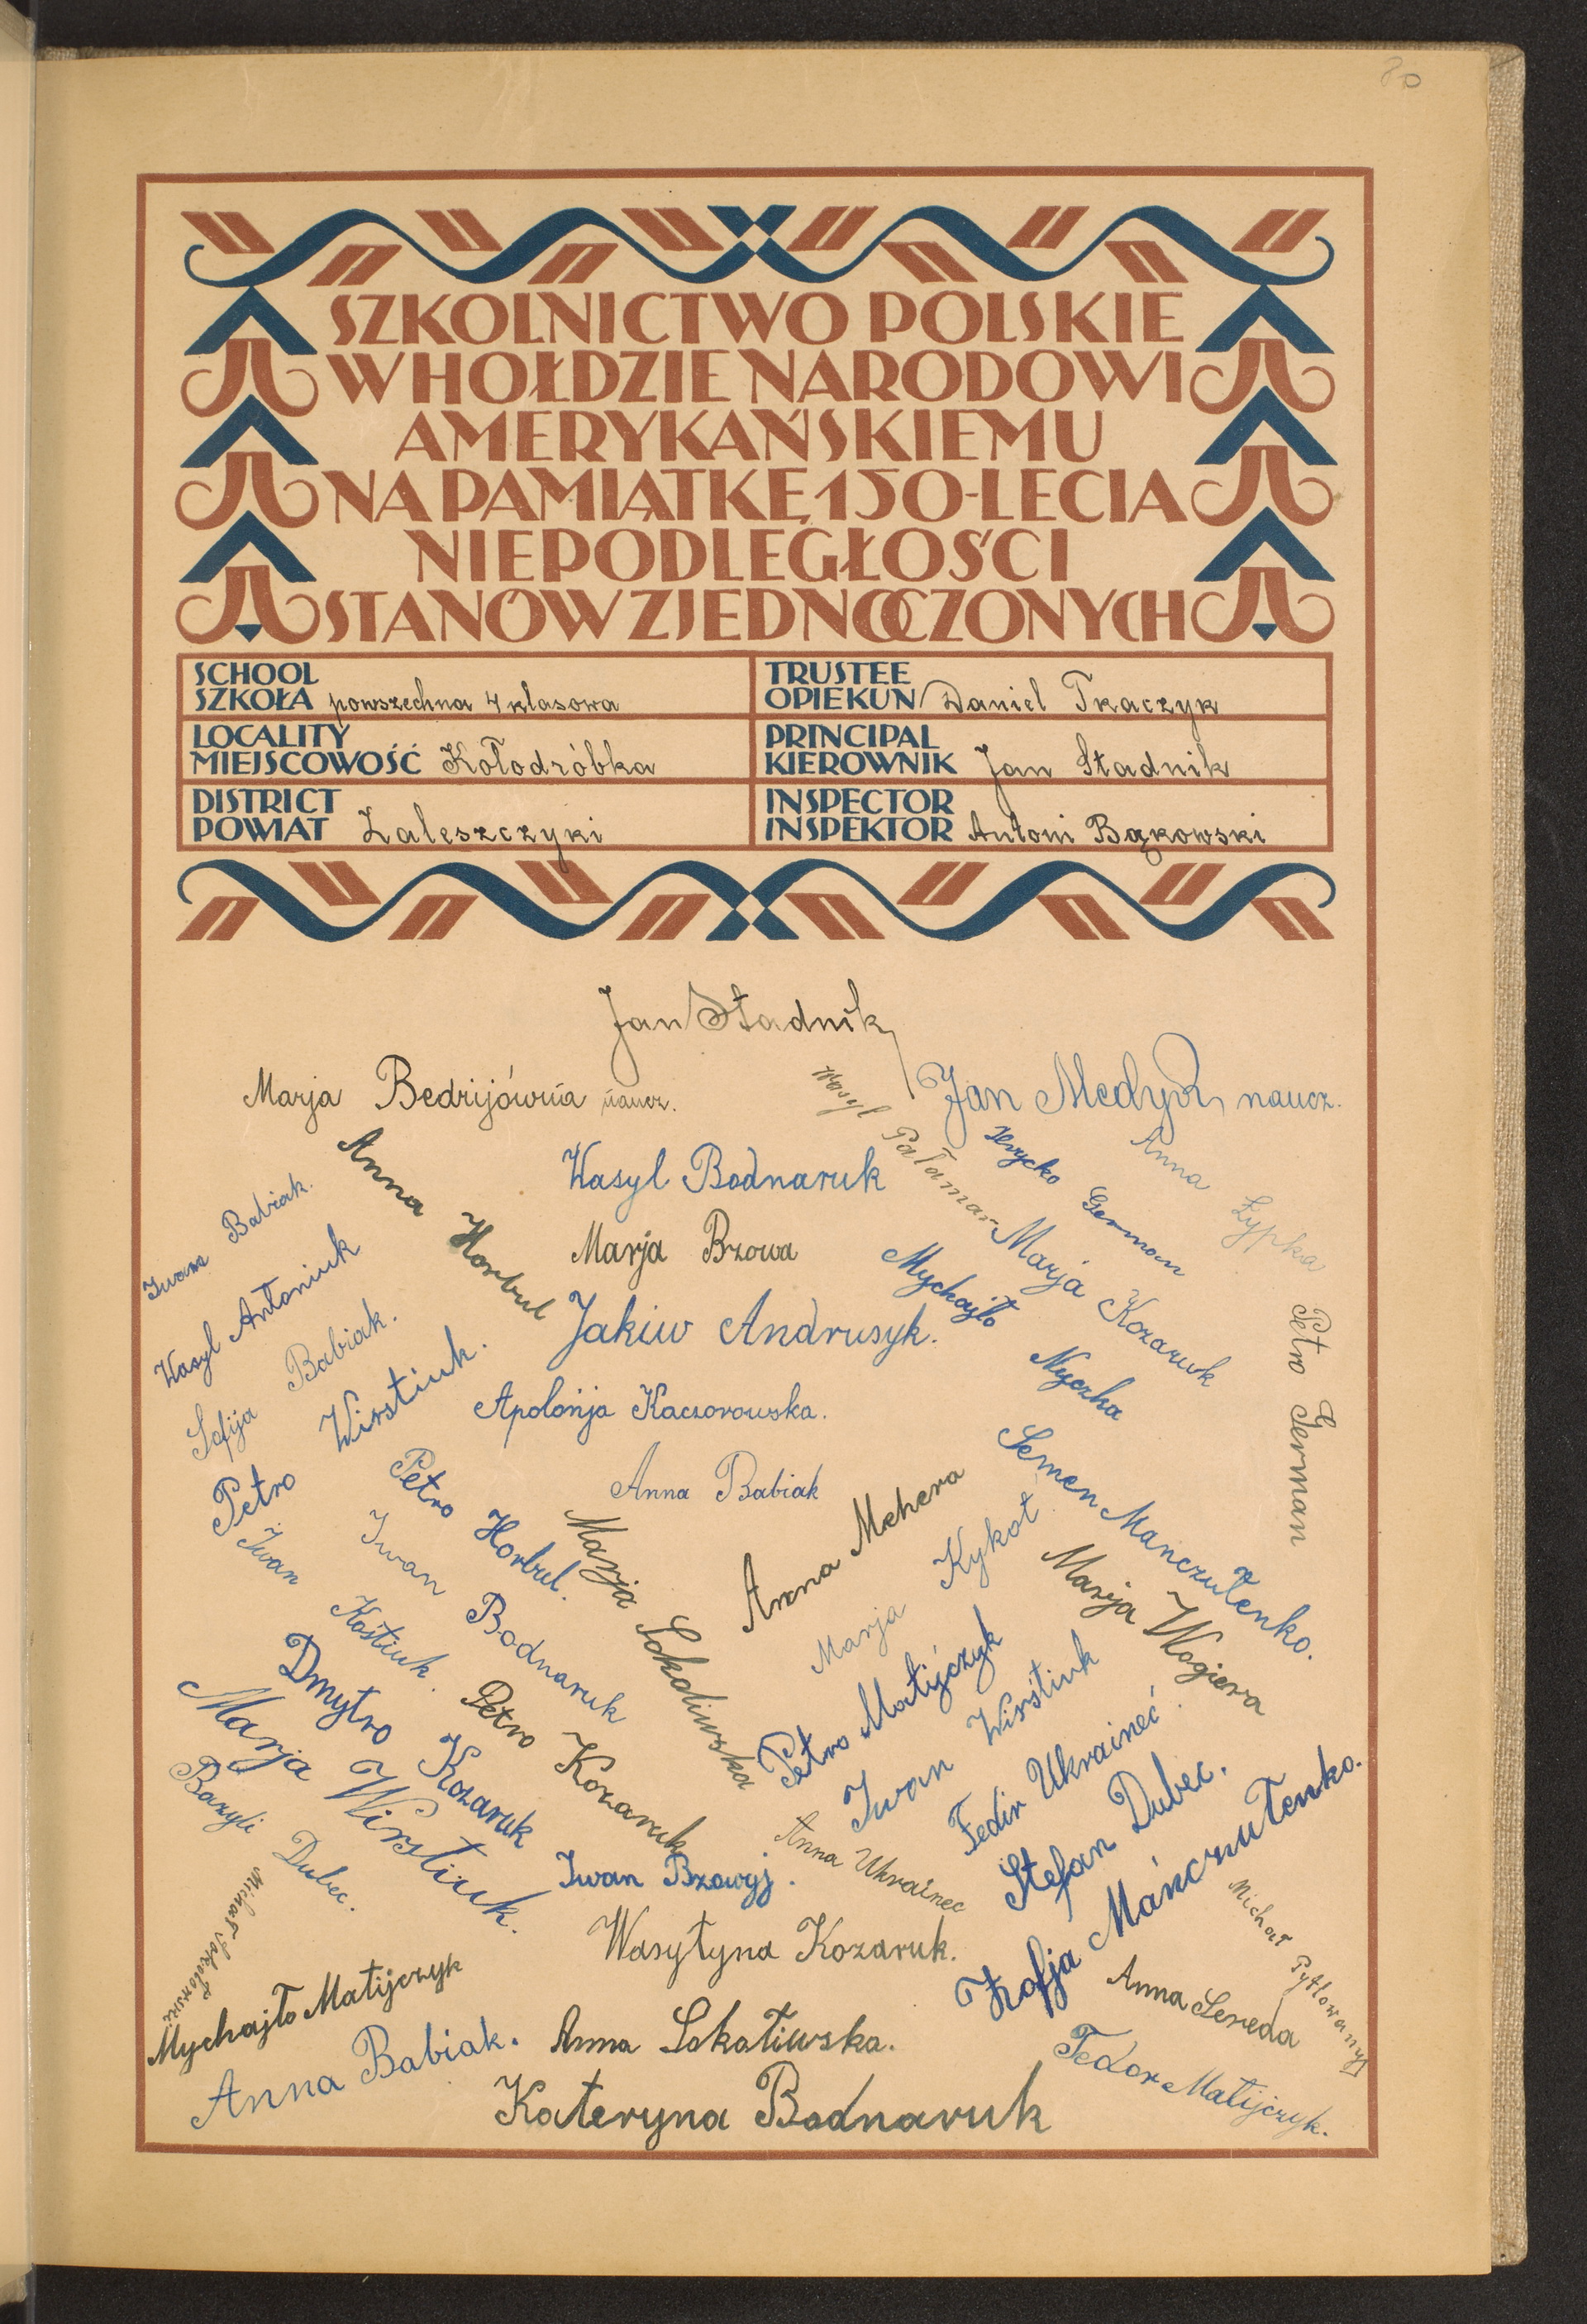 80
SZKOLNICTWO POLSKIE
W HOŁDZIE NARODOWI
AMERYKAŃSKIEMU
NA PAMIĄTKĘ 150-LECIA
NIEPODLEGŁOŚCI
STANÓW ZJEDNOCZONYCH
SCHOOL
SZKOŁA powszechna 4 klasowa
TRUSTEE
OPIEKUN Daniel Tkaczyk
LOCALITY
MIEJSCOWOŚĆ Kołodróbka
PRINCIPAL
KIEROWNIK Jan Stadnik
DISTRICT
POWIAT Zaleszczyki
INSPECTOR
INSPEKTOR Antoni Bąkowski
Jan Stadnik
Marja Bedrijówna naucz.
Jan Medyk, naucz.
Wasyl Pałamar
Hrycko German
Anna Łypka
Anna Horbul
Wasyl Bodnaruk
Iwan Babiak.
Marja Brzowa
Marja Kozaruk
Wasyl Antoniuk
Mychajło Nyczka
Jakiw Andrusyk.
Petro German
Sofija Babiak.
Petro Wirstiuk.
Apolonja Kaczorowska.
Anna Babiak
Petro Horbul.
Semen Manczułenko.
Anna Mehera
Marja Kykot
Iwan Kostiuk.
Iwan Bodnaruk
Marja Sokoliwska
Marja Wogiera
Petro Matijczyk
Iwan Wirstiuk
Dmytro Kozaruk
Petro Kozaruk
Marja Wirstiuk.
Fedir Ukraineć.
Stefan Dubec.
Bazyli Dubec.
Iwan Bzowyj.
Anna Ukrainec
Zofja Mańczułenko.
Michał Sokołowski
Wasyłyna Kozaruk.
Michał Pytlowanyj
Mychajło Matijczyk
Anna Sereda
Anna Babiak.
Anna Sokaliwska.
Fedor Matijczyk.
Kateryna Bodnaruk